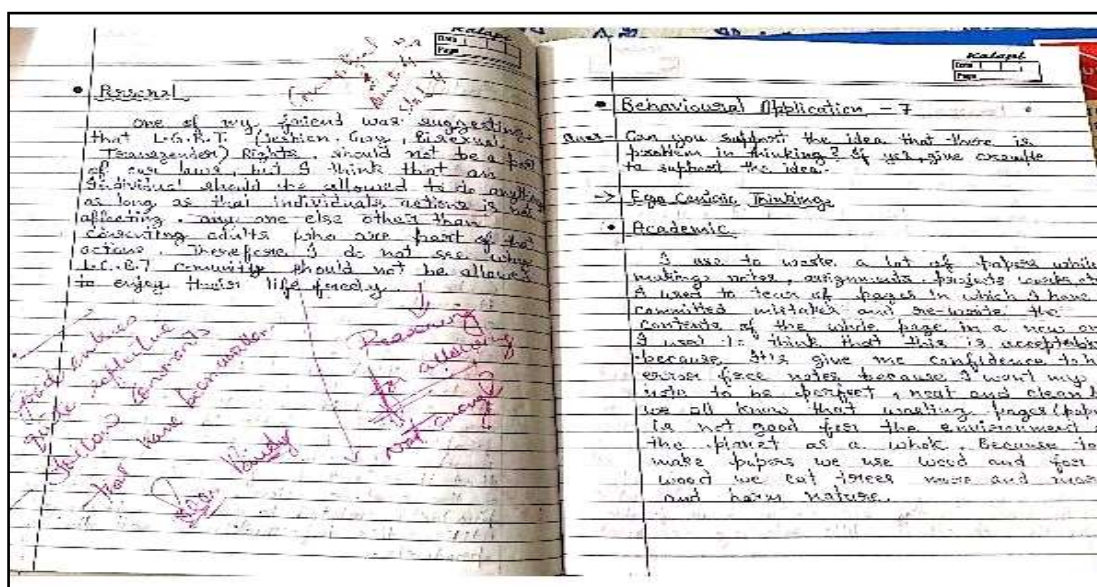 Kalapi
Date
Page
• Personal
One of my friend was suggesting
that L.G.B.T. (Lesbian, Gay, Bisexual,
Transgender) Rights, should not be a part
of our laws, but I think that an
Individual should be allowed to do anything
as long as that individuals actions is not
affecting any one else other than
consenting adults who are part of that
actions. Therefore I do not see why
L.G.B.T community should not be allowed
to enjoy their life freely.
Reasoning
for allowing
not enough
Good entries
follow comments
that have been written
Kalapi
Date
Page
• Behavioural Application - 7
Ques- Can you support the idea that there is
problem in thinking? If yes, give example
to support the idea.
-> Ego Centric Thinking
• Academic
I use to waste a lot of papers while
making notes, assignments, projects works etc
I used to tear of pages in which I have
committed mistakes and re-write the
contents of the whole page in a new one
I used to think that this is acceptable
because this give me confidence to h
error free notes because I want my
note to be perfect, neat and clean b
we all know that wasting pages (pape
is not good for the environment
the planet as a whole. Because to
make papers we use wood and for
wood we cut trees more and more
and harm nature.